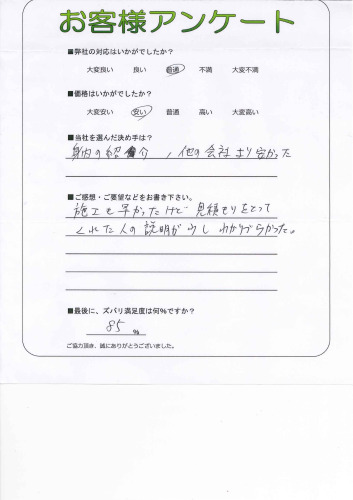 お客様アンケート
■弊社の対応はいかがでしたか?
大変良い 良い 普通 不満 大変不満
■価格はいかがでしたか?
大変安い 安い 普通 高い 大変高い
■当社を選んだ決め手は?
身内の紹介,他の会社より安かった
■ご感想・ご要望などをお書き下さい。
施工も早かったけど見積もりをとって
くれた人の説明が少しわかりづらかった。
■最後に、ズバリ満足度は何%ですか?
85 %
ご協力頂き、誠にありがとうございました。